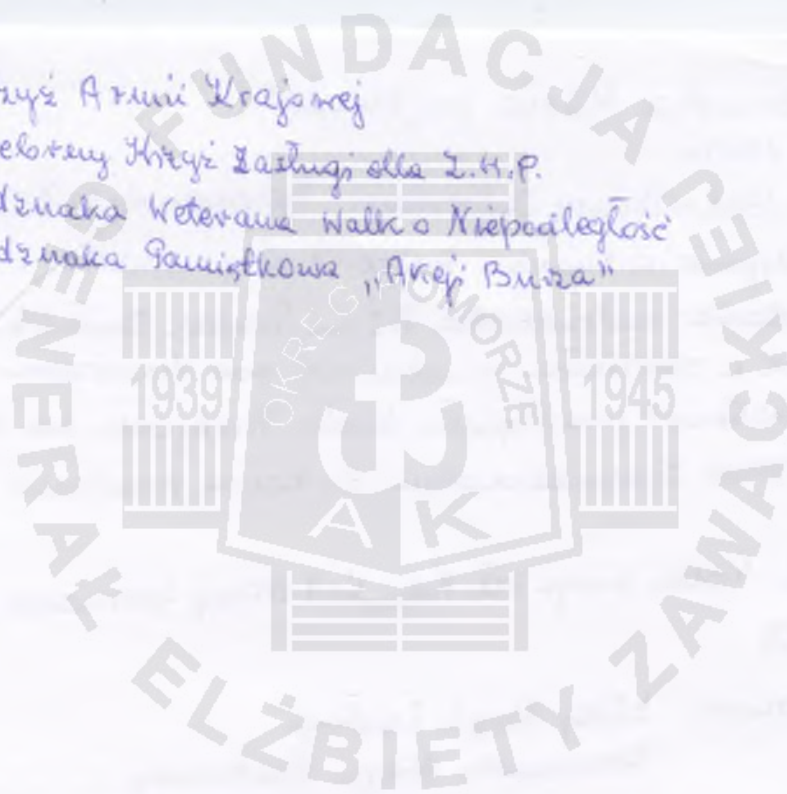 zyż Armii Krajowej
Krzyż Zasługi dla Z.H.P.
dznaka Weterana Walk o Niepodległość
dznaka Pamiątkowa „Akcji Burza"
FUNDACJA GENERAŁ ELŻBIETY ZAWACKIEJ
OKRĘG POMORZE
1939
1945
A K